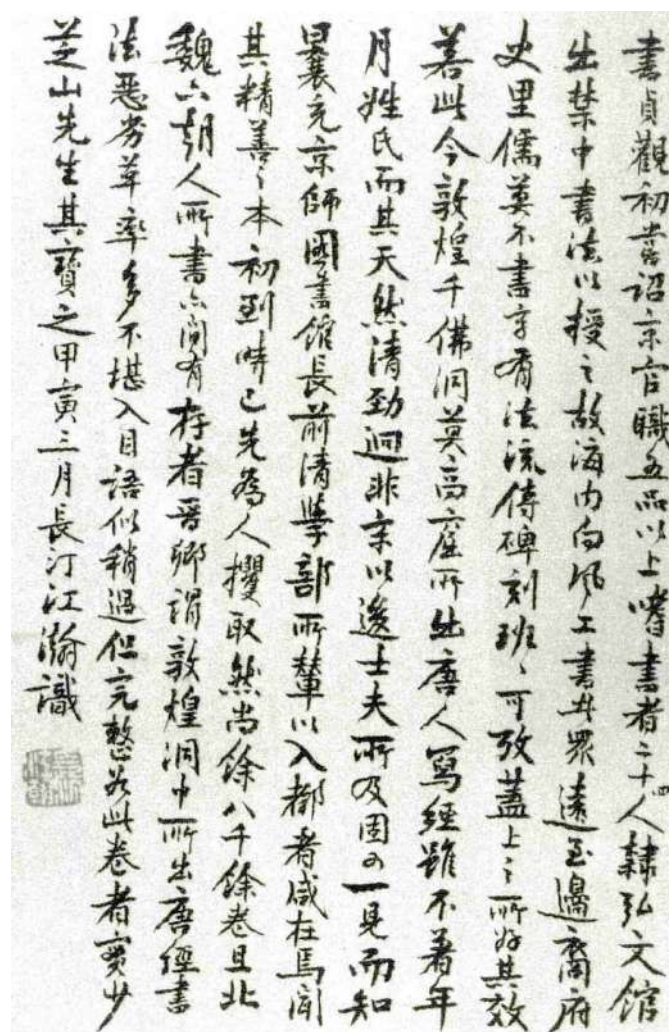 書貞觀初嘗詔京官職五品以上嗜書者二十四人隸弘文館
出禁中書法以授之故海内向風工書者眾遠至邊裔府
史里儒莫不書字有法流傳碑刻班〻可攷蓋上之所好其效
若此今敦煌千佛洞莫高窟所出唐人寫經雖不著年
月姓氏而其天然清勁迥非宋以後士夫所及固可一見而知
曩充京師圖書館長前清學部所輦以入都者咸在焉聞
其精善之本初到時已先為人攫取然尚餘八千餘卷且北
魏六朝人所書亦間有存者晉卿謂敦煌洞中所出唐經書
法惡劣草率多不堪入目語似稍過但完整如此卷者實少
芝山先生其寶之甲寅三月長汀江瀚識